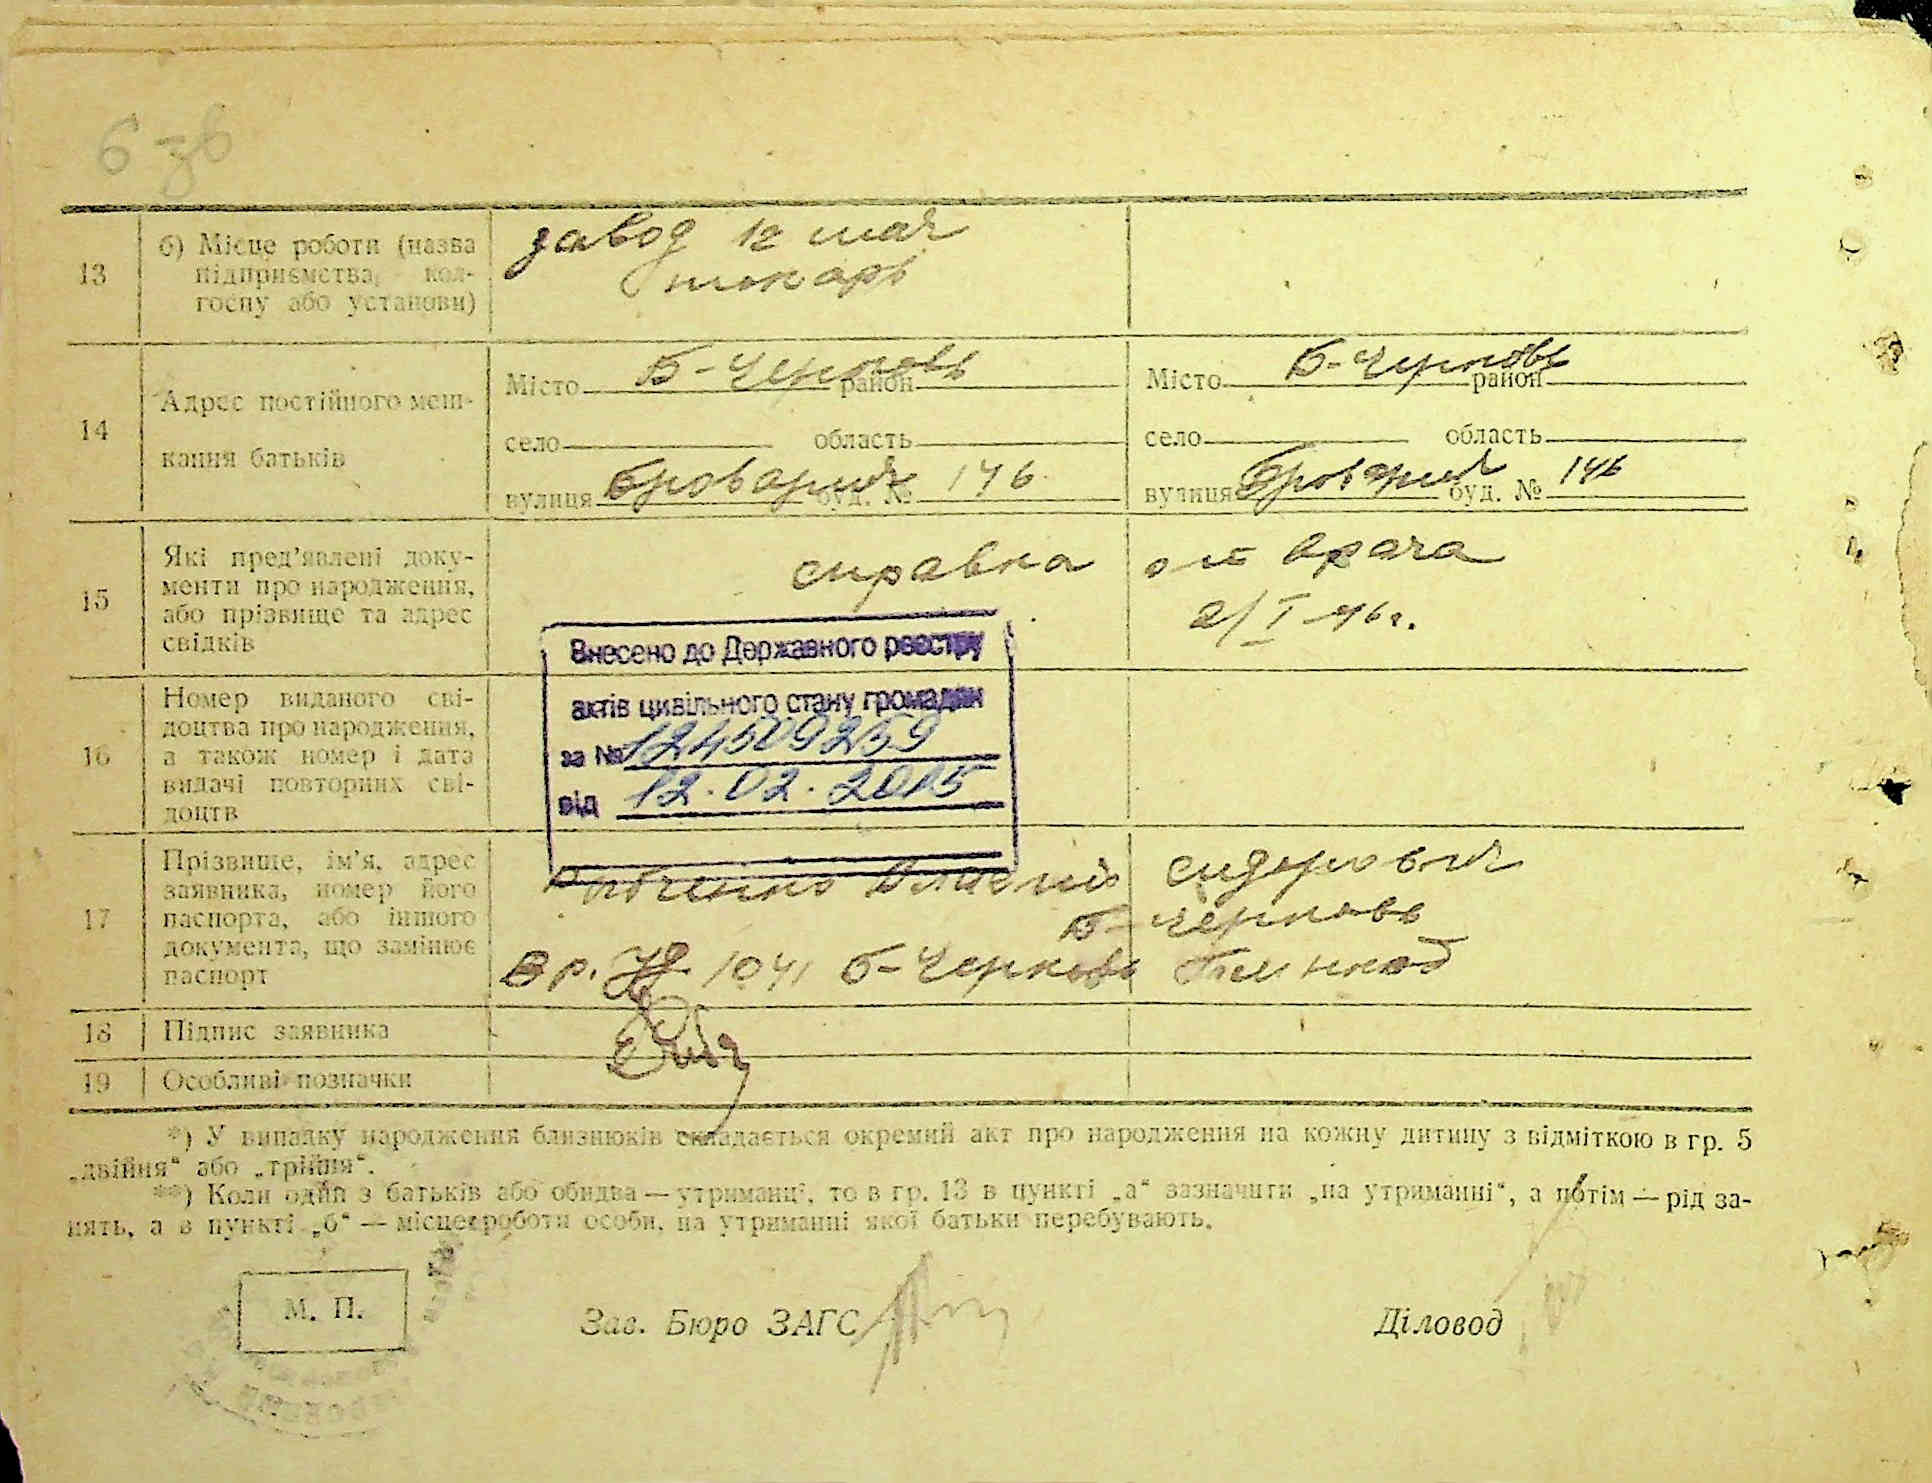 6 зв
13
б) Місце роботи (назва
підприємства, кол-
госпу або установи)
завод 12 шах
токарь
14
Адрес постійного меш-
кання батьків
Місто Б-Церковь район
село область
вулиця буд. № 146
Місто Б-Церковь район
село область
вулиця буд. № 146
15
Які пред'явлені доку-
менти про народження,
або прізвище та адрес
свідків
справка от врача
2/I 46г.
Внесено до Державного реєстру
актів цивільного стану громадян
за № 124509259
від 12.02.2015
16
Номер виданого сві-
доцтва про народження,
а також номер і дата
видачі повторних сві-
доцтв
17
Прізвище, ім'я, адрес
заявника, номер його
паспорта, або іншого
документа, що замінює
паспорт
Сидорович
Б-Церковь
Вр. 1041 Б-Церковь
18
Підпис заявника
19
Особливі позначки
*) У випадку народження близнюків складається окремий акт про народження на кожну дитину з відміткою в гр. 5
„двійня“ або „трійня“.
**) Коли один з батьків або обидва — утриманці, то в гр. 13 в пункті „а“ зазначити „на утриманні“, а потім — рід за-
нять, а в пункті „б“ — місце роботи особи, на утриманні якої батьки перебувають.
М. П.
Зав. Бюро ЗАГС
Діловод